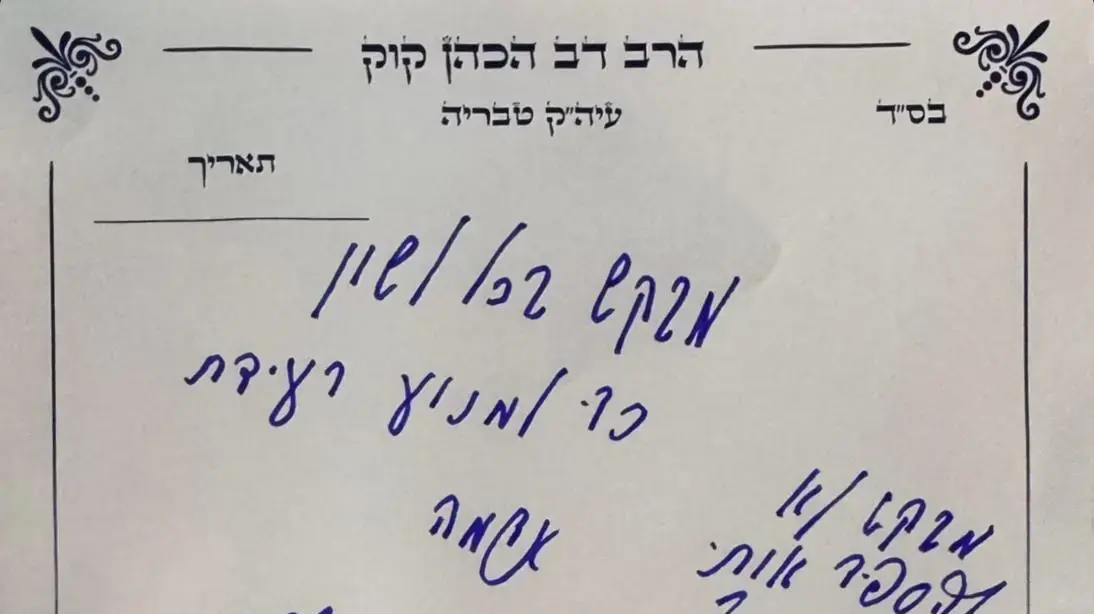 הרב דב הכהן קוק
עיה"ק טבריה
בס"ד
תאריך
מבקש בכל לשון
כדי למנוע רעידת
אדמה
מבקש לא
להספיד אותי